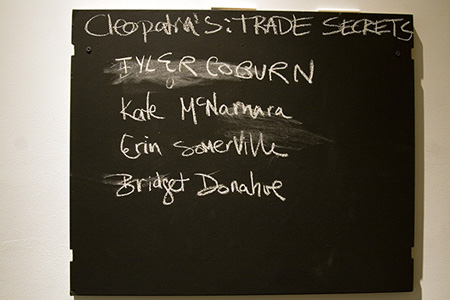 Cleopatra's: TRADE SECRETS
TYLER COBURN
Kate McNamara
Erin Somerville
Bridget Donahue